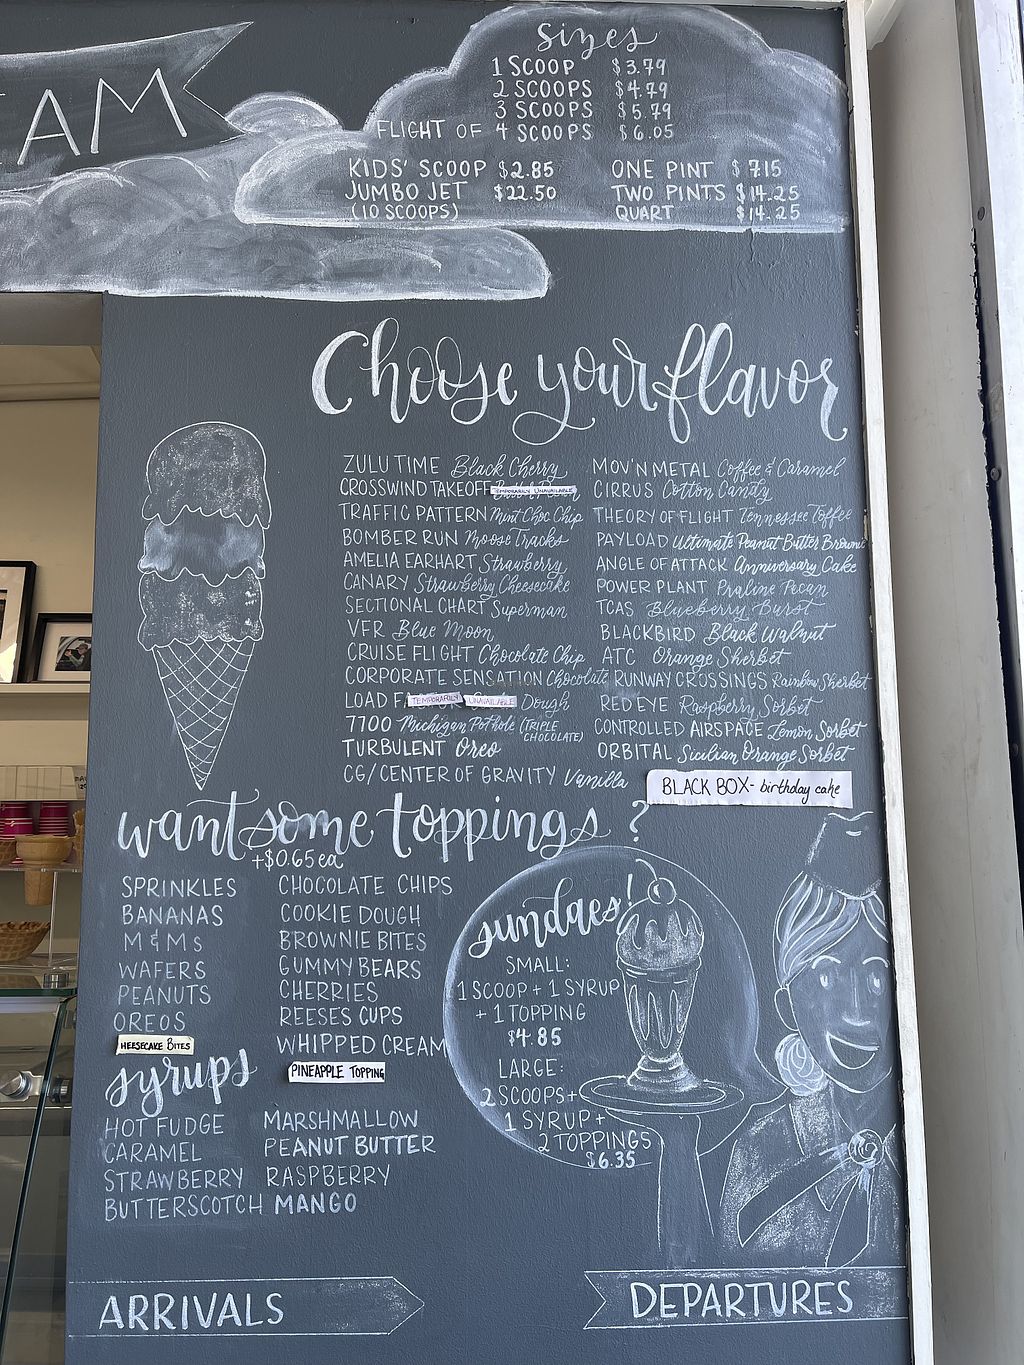 EAM
sizes
1 SCOOP $3.79
2 SCOOPS $4.79
3 SCOOPS $5.79
FLIGHT OF 4 SCOOPS $6.05
KIDS' SCOOP $2.85
JUMBO JET $22.50
(10 SCOOPS)
ONE PINT $7.15
TWO PINTS $14.25
QUART $14.25
Choose your flavor
ZULU TIME Black Cherry
CROSSWIND TAKEOFF TEMPORARILY UNAVAILABLE
TRAFFIC PATTERN Mint Choc Chip
BOMBER RUN Moose Tracks
AMELIA EARHART Strawberry
CANARY Strawberry Cheesecake
SECTIONAL CHART Superman
VFR Blue Moon
CRUISE FLIGHT Chocolate Chip
CORPORATE SENSATION Chocolate
LOAD FA TEMPORARILY UNAVAILABLE Dough
7700 Michigan Pothole (TRIPLE CHOCOLATE)
TURBULENT Oreo
CG/CENTER OF GRAVITY Vanilla
MOV'N METAL Coffee & Caramel
CIRRUS Cotton Candy
THEORY OF FLIGHT Tennessee Toffee
PAYLOAD Ultimate Peanut Butter Brownie
ANGLE OF ATTACK Anniversary Cake
POWER PLANT Praline Pecan
TCAS Blueberry Burst
BLACKBIRD Black Walnut
ATC Orange Sherbet
RUNWAY CROSSINGS Rainbow Sherbet
RED EYE Raspberry Sorbet
CONTROLLED AIRSPACE Lemon Sorbet
ORBITAL Sicilian Orange Sorbet
BLACK BOX- birthday cake
want some toppings?
+$0.65 ea
SPRINKLES
BANANAS
M&Ms
WAFERS
PEANUTS
OREOS
HEESECAKE BITES
CHOCOLATE CHIPS
COOKIE DOUGH
BROWNIE BITES
GUMMY BEARS
CHERRIES
REESES CUPS
WHIPPED CREAM
PINEAPPLE TOPPING
syrups
HOT FUDGE
CARAMEL
STRAWBERRY
BUTTERSCOTCH
MARSHMALLOW
PEANUT BUTTER
RASPBERRY
MANGO
sundaes!
SMALL:
1 SCOOP + 1 SYRUP
+ 1 TOPPING
$4.85
LARGE:
2 SCOOPS +
1 SYRUP +
2 TOPPINGS
$6.35
ARRIVALS
DEPARTURES